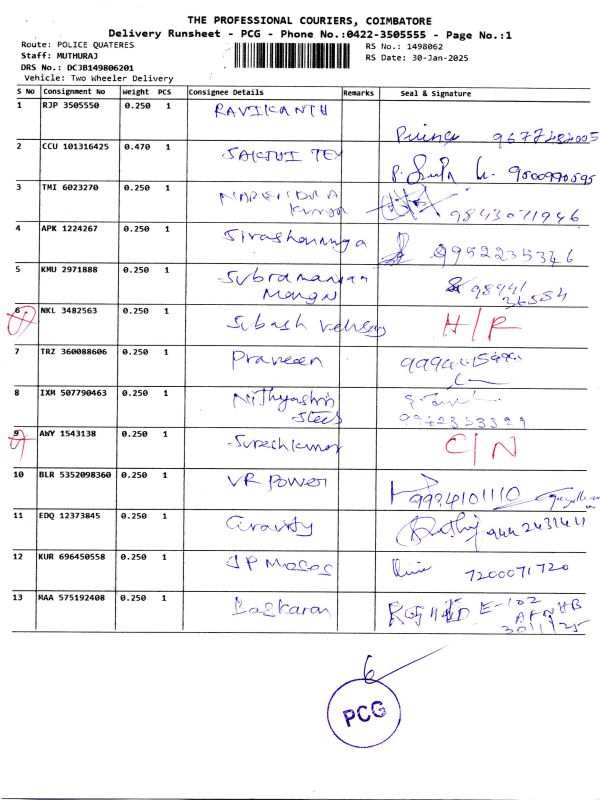 THE PROFESSIONAL COURIERS, COIMBATORE
Delivery Runsheet - PCG - Phone No.:0422-3505555 - Page No.:1
Route: POLICE QUATERES
RS No.: 1498062
Staff: MUTHURAJ
RS Date: 30-Jan-2025
DRS No.: DCJB149806201
Vehicle: Two Wheeler Delivery
S No Consignment No Weight PCS Consignee Details Remarks Seal & Signature
1 RJP 3505550 0.250 1 RAVIKANTH
2 CCU 101316425 0.470 1 SAKTHI TEX
9500990595
3 TMI 6023270 0.250 1 NARENDRA
Kumar
9843071946
4 APK 1224267 0.250 1 9952235346
5 KMU 2971888 0.250 1 Subramanian
98441
36584
6 NKL 3482563 0.250 1 Subash
7 TRZ 360088606 0.250 1 Praveen
8 IXM 507790463 0.250 1 Nithyashri
Steels
9 AWY 1543138 0.250 1 Sureshkumar C/N
10 BLR 5352098360 0.250 1 VR POWER
9934101110
11 EDQ 12373845 0.250 1 Gravity
9442431411
12 KUR 696450558 0.250 1 7200071720
13 MAA 575192408 0.250 1 Baskaran E-102
30/1/25
6
PCG